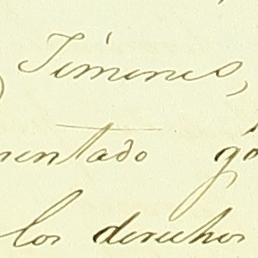 Jimenes,
mentado go
los derechos